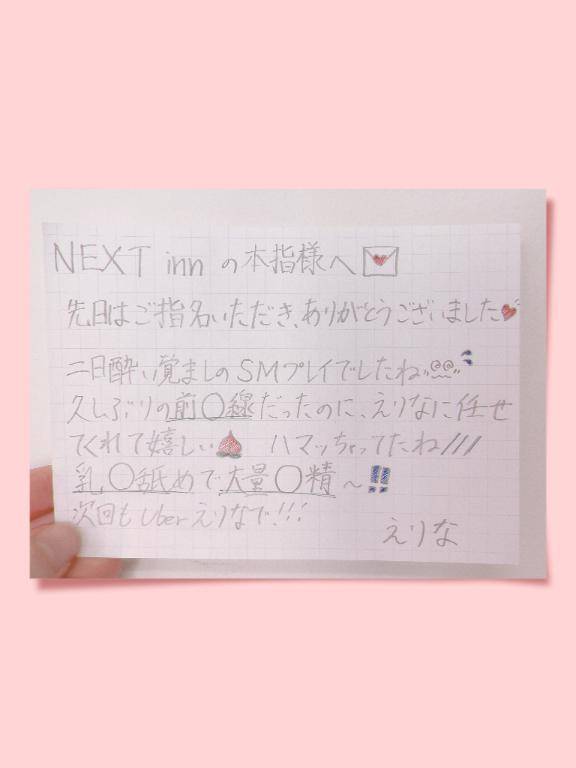 NEXT innの本指様へ
先日はご指名いただき、ありがとうございました
二日酔い覚ましのSMプレイでしたね
久しぶりの前〇線だったのに、えりなに任せ
てくれて嬉しい ハマッちゃってたね///
乳〇舐めで大量〇精〜!!
次回もUberえりなで!!!
えりな